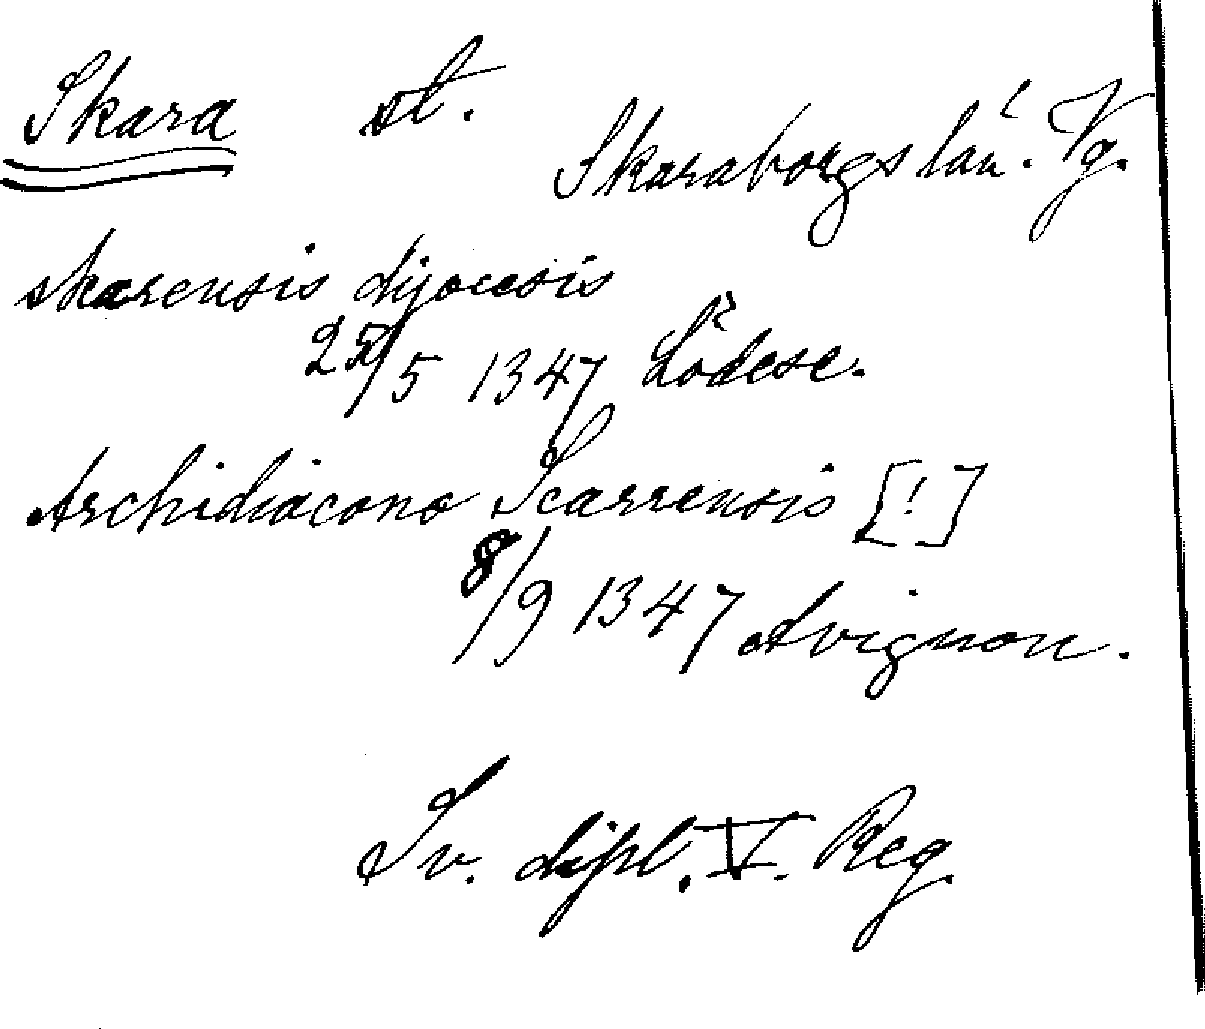 Skara st.
Skaraborgs län. Vg.
skarensis dyocesis
/5 1347 Lödese.
Archidiacono Scarrensis [!]
8/9 1347 Avignon.
Sv. dipl. V. Reg.